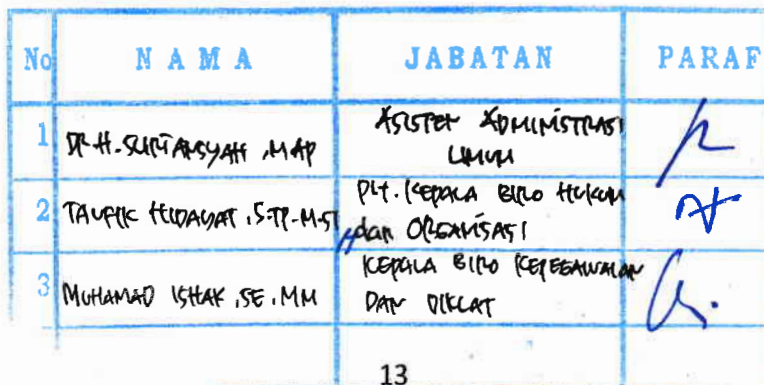 No N A M A JABATAN PARAF
1 DR. H. SURIANSYAH , M.AP ASISTEN ADMINISTRASI UMUM
2 TAUFIK HIDAYAT , S.TP. M.SI Plt. KEPALA BIRO HUKUM dan ORGANISASI
3 MUHAMAD ISHAK , SE , MM KEPALA BIRO KEPEGAWAIAN DAN DIKLAT
13